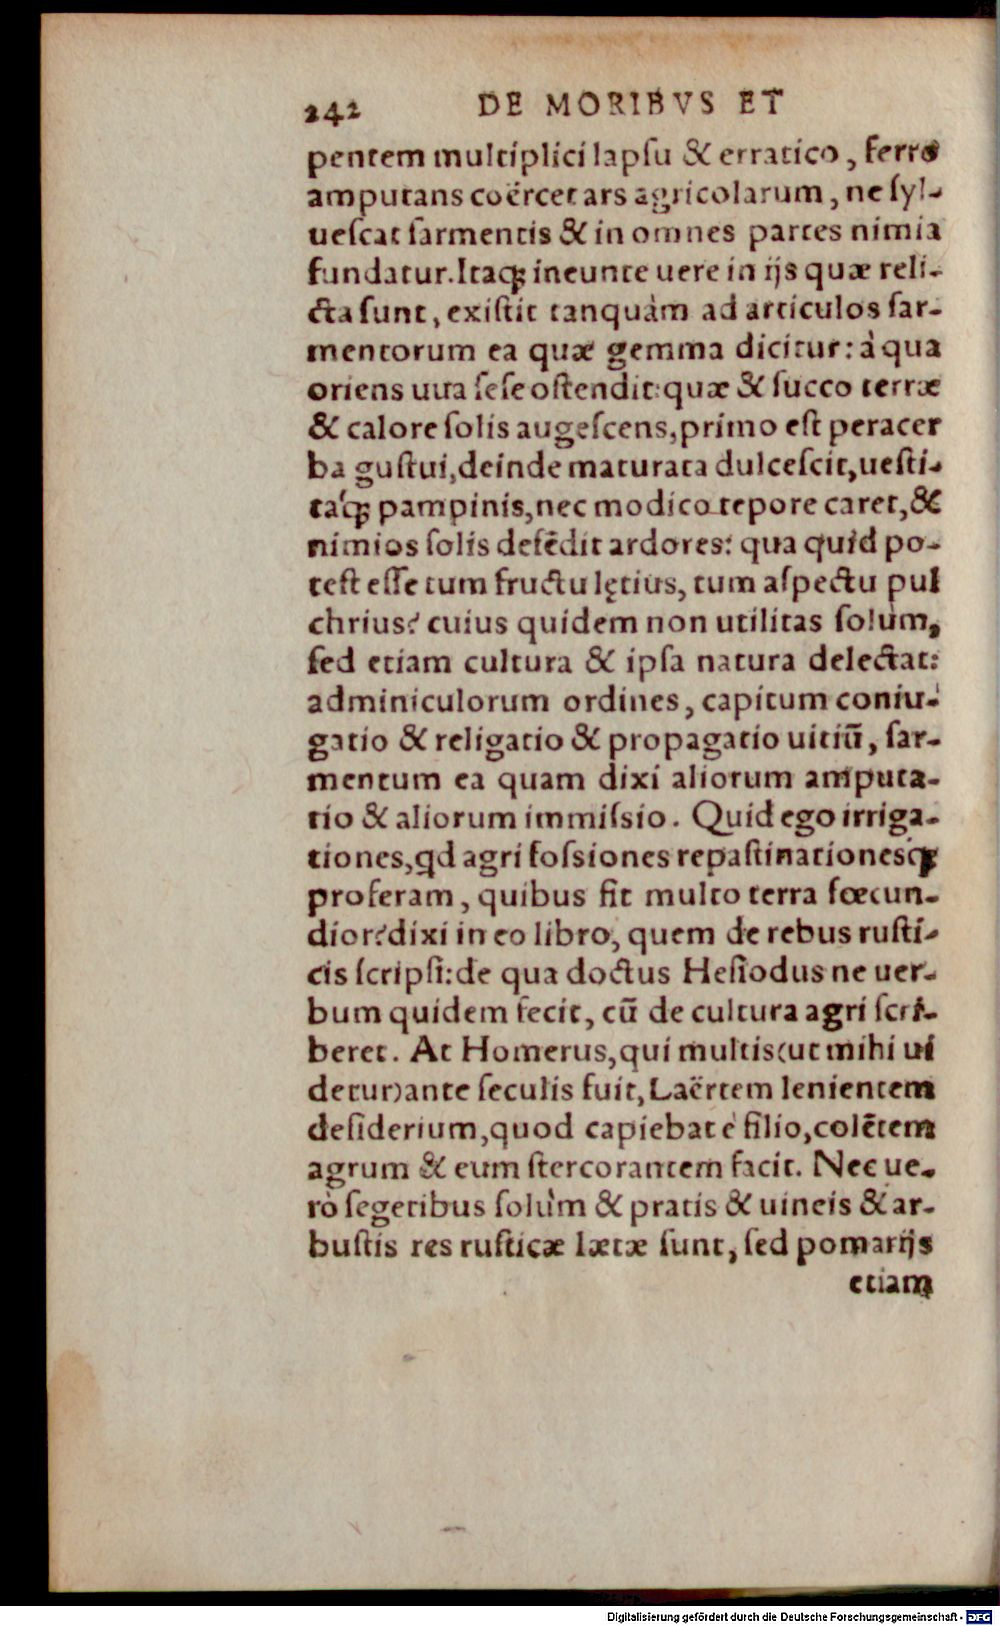 242 DE MORIBVS ET
pentem multiplici lapſu & erratico, ferro
amputans coërcet ars agricolarum, ne ſyl-
ueſcat ſarmentis & in omnes partes nimia
fundatur. Itaqꝫ ineunte uere in ijs quæ reli-
cta ſunt, exiſtit tanquàm ad articulos ſar-
mentorum ea quæ gemma dicitur: à qua
oriens uua ſeſe oſtendit: quæ & ſucco terræ
& calore ſolis augeſcens, primo eſt peracer
ba guſtui, deinde maturata dulceſcit, ueſti-
ta'qꝫ pampinis, nec modico tepore caret, &
nimios ſolis defẽdit ardores: qua quid po-
teſt eſſe tum fructu lętius, tum aſpectu pul
chrius? cuius quidem non utilitas ſolùm,
ſed etiam cultura & ipſa natura delectat:
adminiculorum ordines, capitum coniu-
gatio & religatio & propagatio uitiũ, ſar-
mentum ea quam dixi aliorum amputa-
tio & aliorum immiſsio. Quid ego irriga-
tiones, qd agri foſsiones repaſtinationesqꝫ
proferam, quibus fit multo terra fœcun-
dior? dixi in eo libro, quem de rebus ruſti-
cis ſcripſi: de qua doctus Heſiodus ne uer-
bum quidem fecit, cũ de cultura agri ſcri-
beret. At Homerus, qui multis (ut mihi ui
detur) ante ſeculis fuit, Laërtem lenientem
deſiderium, quod capiebat è filio, colẽtem
agrum & eum ſtercorantem facit. Nec ue-
rò ſegetibus ſolùm & pratis & uineis & ar-
buſtis res ruſticæ lætæ ſunt, ſed pomarijs
etiam
Digitalisierung gefördert durch die Deutsche Forschungsgemeinschaft - DFG